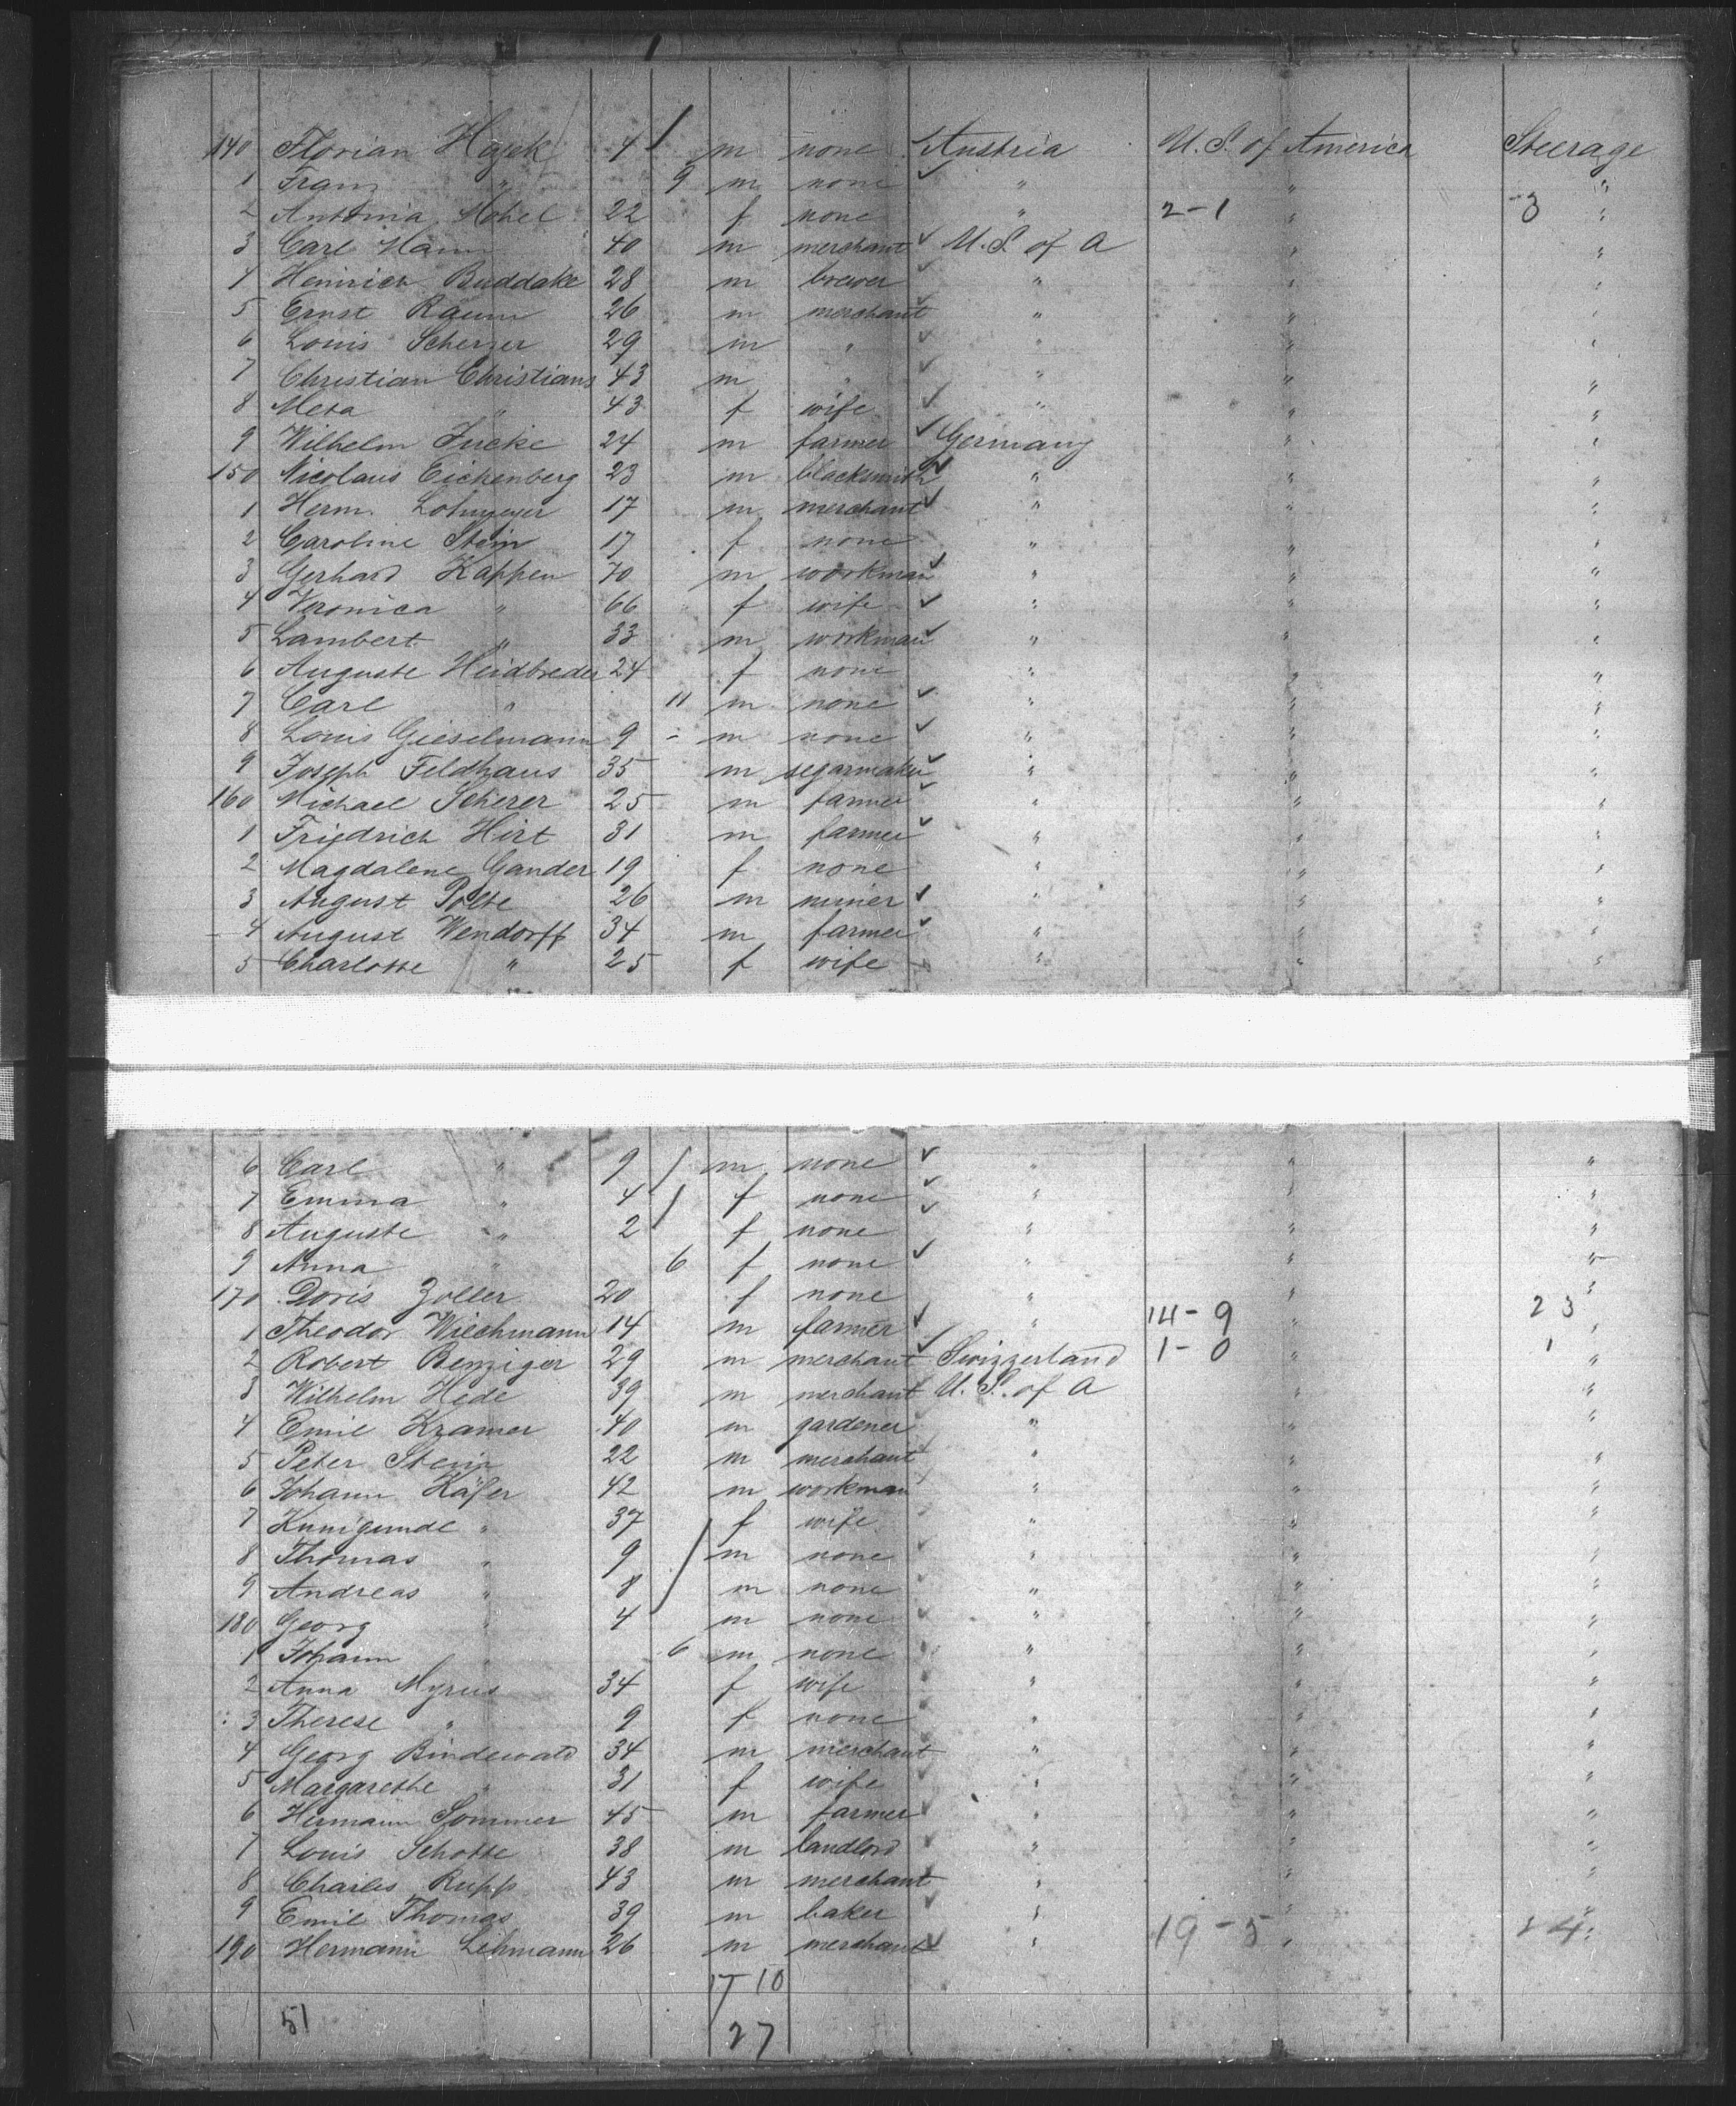 140 Florian Hajek 4 m none Austria U.S. of America Steerage
1 Franz " 9 m none " " "
2 Antonia 22 f none " 2-1 " 3 "
3 Carl Hann 40 m merchant U.S. of A " "
4 Heinrich Buddake 28 m brewer " " "
5 Ernst Raum 26 m merchant " " "
6 Louis Scherzer 29 m " " " "
7 Christian Christians 43 m " " " "
8 Meta " 43 f wife " " "
9 Wilhelm Lucke 24 m farmer Germany " "
150 Nicolaus Eickenberg 23 m blacksmith " " "
1 Herm. Lohmeyer 17 m merchant " " "
2 Caroline Stein 17 f none " " "
3 Gerhard Kappen 70 m workman " " "
4 Veronica " 66 f wife " " "
5 Lambert " 33 m workman " " "
6 Auguste Heidbreder 24 f none " " "
7 Carl " 11 m none " " "
8 Louis Gieselmann 9 - m none " " "
9 Joseph Feldhaus 35 m segarmaker " " "
160 Michael Scherer 25 m farmer " " "
1 Friedrich Hirt 31 m farmer " " "
2 Magdalene Gander 19 f none " " "
3 August Polte 26 m miner " " "
4 August Wendorff 34 m farmer " " "
5 Charlotte " 25 f wife " " "
6 Carl " 9 m none " " "
7 Emma " 4 f none " " "
8 Auguste " 2 f none " " "
9 Anna " 6 f none " " "
170 Doris Zoller 20 f none " " "
1 Theodor Wiechmann 14 m farmer " 14-9 " 23 "
2 Robert Benziger 29 m merchant Swizzerland 1-0 " 1 "
3 Wilhelm Hede 39 m merchant U.S. of A " "
4 Emil Kramer 40 m gardener " " "
5 Peter Stein 22 m merchant " " "
6 Johann Käfer 42 m workman " " "
7 Kunigunde " 37 f wife " " "
8 Thomas " 9 m none " " "
9 Andreas " 8 m none " " "
180 Georg " 4 m none " " "
1 Johann " 6 m none " " "
2 Anna Myrus 34 f wife " " "
3 Therese " 9 f none " " "
4 Georg Bindewald 34 m merchant " " "
5 Margarethe " 31 f wife " " "
6 Hermann Sommer 45 m farmer " " "
7 Louis Schotte 38 m landlord " " "
8 Charles Rupp 43 m merchant " " "
9 Emil Thomas 39 m baker " " "
190 Hermann Lehmann 26 m merchant " 19-5 " 24 "
17 10
51 27